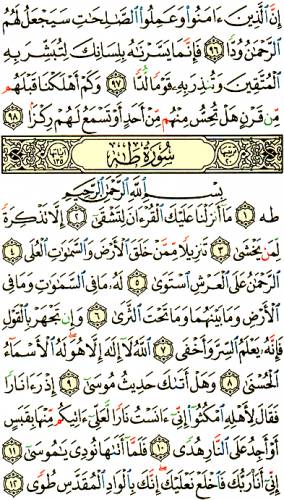 إِنَّ الَّذِينَ ءَامَنُوا۟ وَعَمِلُوا۟ الصَّـٰلِحَـٰتِ سَيَجْعَلُ لَهُمُ
الرَّحْمَـٰنُ وُدًّا ٩٦ فَإِنَّمَا يَسَّرْنَـٰهُ بِلِسَانِكَ لِتُبَشِّرَ بِهِ
الْمُتَّقِينَ وَتُنذِرَ بِهِ قَوْمًا لُّدًّا ٩٧ وَكَمْ أَهْلَكْنَا قَبْلَهُم
مِّن قَرْنٍ هَلْ تُحِسُّ مِنْهُم مِّنْ أَحَدٍ أَوْ تَسْمَعُ لَهُمْ رِكْزًا ٩٨
سُورَةُ طه
بِسْمِ اللَّهِ الرَّحْمَـٰنِ الرَّحِيمِ
طه ١ مَا أَنزَلْنَا عَلَيْكَ الْقُرْءَانَ لِتَشْقَىٰ ٢ إِلَّا تَذْكِرَةً
لِّمَن يَخْشَىٰ ٣ تَنزِيلًا مِّمَّنْ خَلَقَ الْأَرْضَ وَالسَّمَـٰوَٰتِ الْعُلَى ٤
الرَّحْمَـٰنُ عَلَى الْعَرْشِ اسْتَوَىٰ ٥ لَهُ مَا فِي السَّمَـٰوَٰتِ وَمَا فِي
الْأَرْضِ وَمَا بَيْنَهُمَا وَمَا تَحْتَ الثَّرَىٰ ٦ وَإِن تَجْهَرْ بِالْقَوْلِ
فَإِنَّهُ يَعْلَمُ السِّرَّ وَأَخْفَى ٧ اللَّهُ لَا إِلَـٰهَ إِلَّا هُوَ لَهُ الْأَسْمَاءُ
الْحُسْنَىٰ ٨ وَهَلْ أَتَىٰكَ حَدِيثُ مُوسَىٰ ٩ إِذْ رَءَا نَارًا
فَقَالَ لِأَهْلِهِ امْكُثُوا۟ إِنِّي ءَانَسْتُ نَارًا لَّعَلِّي ءَاتِيكُم مِّنْهَا بِقَبَسٍ
أَوْ أَجِدُ عَلَى النَّارِ هُدًى ١٠ فَلَمَّا أَتَىٰهَا نُودِيَ يَـٰمُوسَىٰ ١١
إِنِّي أَنَا رَبُّكَ فَاخْلَعْ نَعْلَيْكَ إِنَّكَ بِالْوَادِ الْمُقَدَّسِ طُوًى ١٢